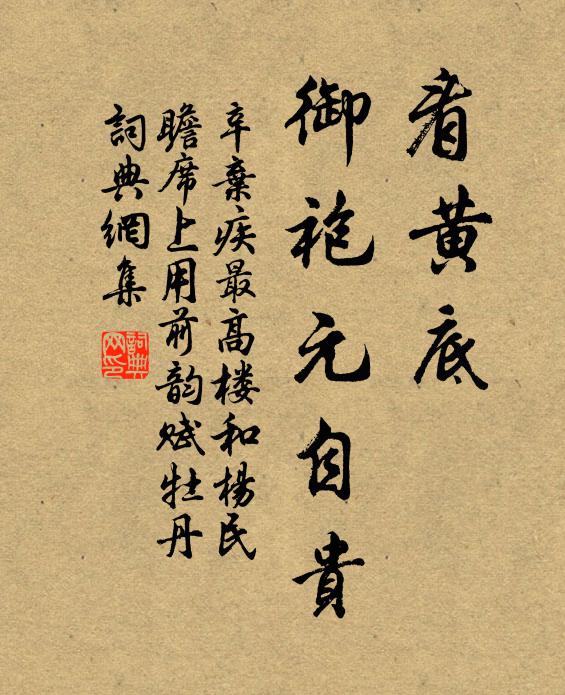 看黄底
御袍元自貴
辛棄疾最高楼和楊民
瞻席上用前韵赋牡丹
詞典網集
詞典
网印